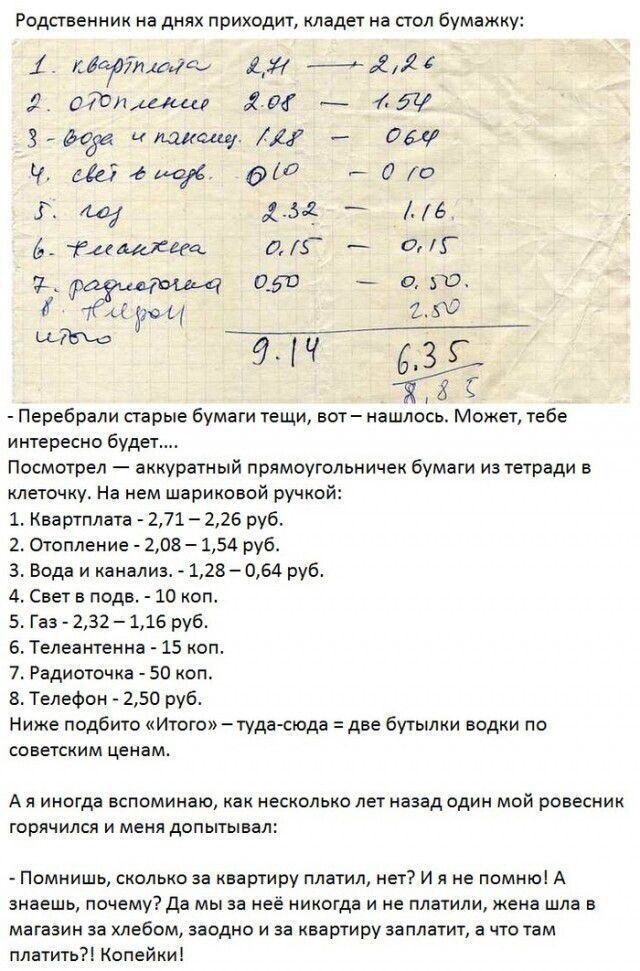 Родственник на днях приходит, кладет на стол бумажку:
1. квартплата 2,71 — 2,26
2. отопление 2.08 — 1.54
3 - вода и канализ. 1.28 — 0 64
4. свет в подв. 0 10 — 0 10
5. газ 2.32 — 1.16.
6. 0.15 — 0,15
7. радиоточка 0.50 — 0.50.
8. 2.50
итого 9.14 6.35
8,85
- Перебрали старые бумаги тещи, вот – нашлось. Может, тебе
интересно будет....
Посмотрел — аккуратный прямоугольничек бумаги из тетради в
клеточку. На нем шариковой ручкой:
1. Квартплата - 2,71 – 2,26 руб.
2. Отопление - 2,08 – 1,54 руб.
3. Вода и канализ. - 1,28 – 0,64 руб.
4. Свет в подв. - 10 коп.
5. Газ - 2,32 – 1,16 руб.
6. Телеантенна - 15 коп.
7. Радиоточка - 50 коп.
8. Телефон - 2,50 руб.
Ниже подбито «Итого» – туда-сюда = две бутылки водки по
советским ценам.
А я иногда вспоминаю, как несколько лет назад один мой ровесник
горячился и меня допытывал:
- Помнишь, сколько за квартиру платил, нет? И я не помню! А
знаешь, почему? Да мы за неё никогда и не платили, жена шла в
магазин за хлебом, заодно и за квартиру заплатит, а что там
платить?! Копейки!